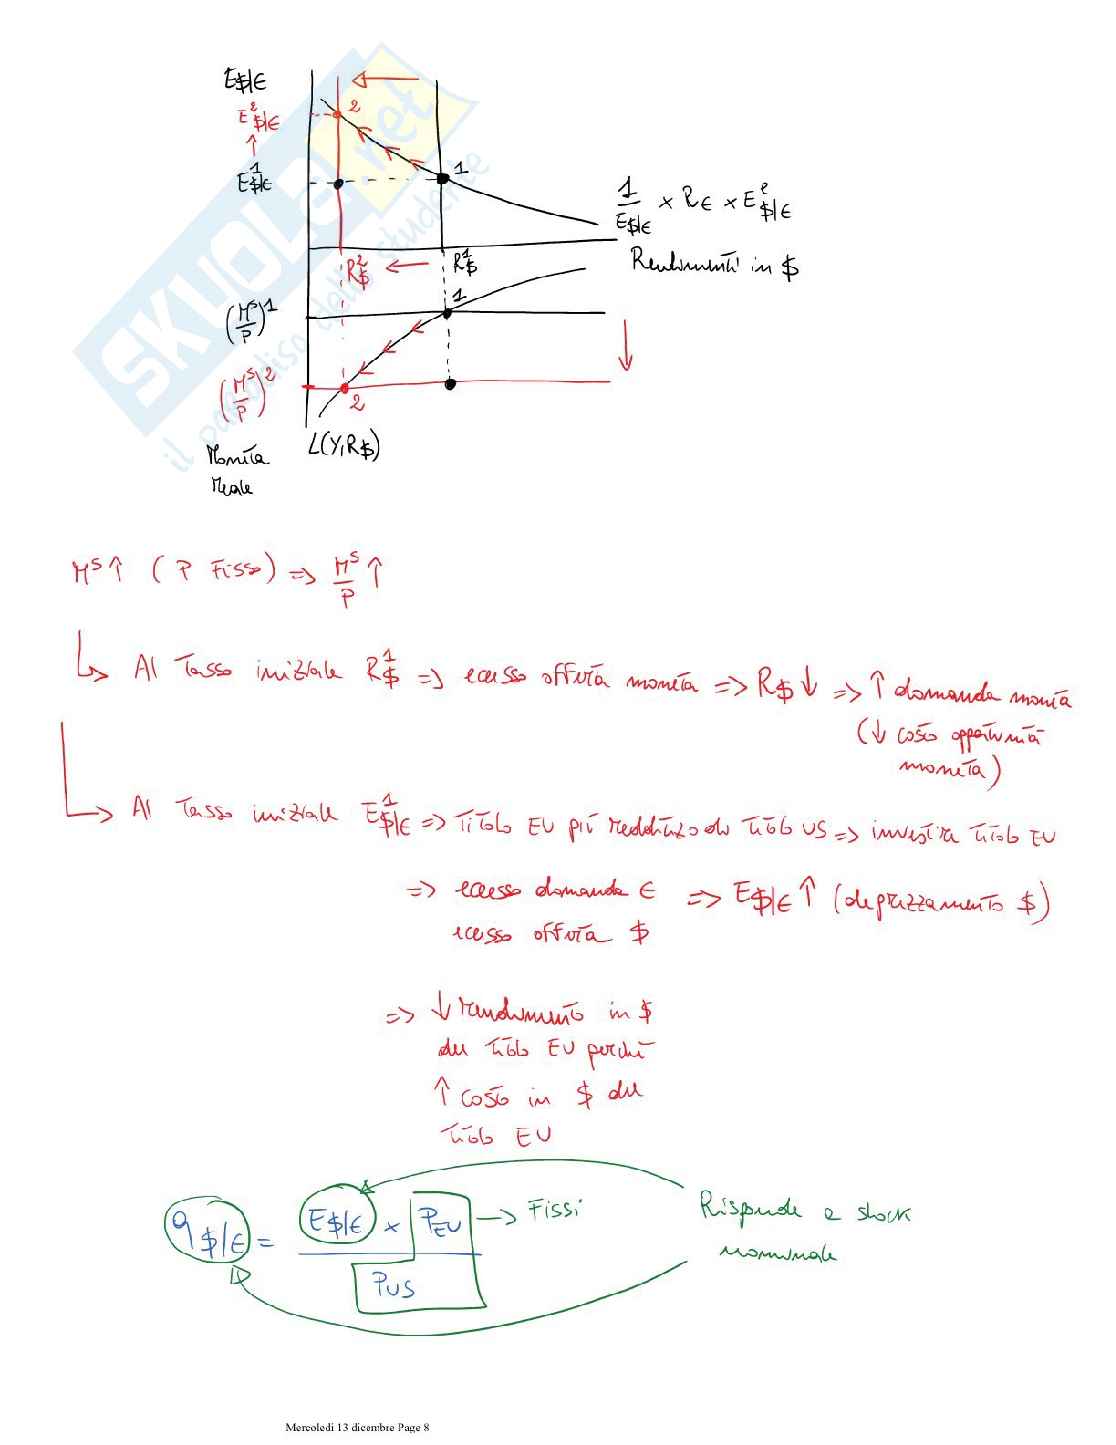 E$/€
E²$/€
↑
E¹$/€
2
1
1/E$/€ × R€ × Eᵉ$/€
Rendimenti in $
R²$ ← R¹$
1
(Mˢ/P)¹
(Mˢ/P)²
2
Moneta
Reale
L(Y,R$)
SKUOLA.net
il paradiso dello studente
Mˢ↑ (P Fisso) => Mˢ/P ↑
Al Tasso iniziale R¹$ => ecesso offerta moneta => R$↓ => ↑ domanda moneta
(↓ costo opportunità
moneta)
Al Tasso iniziale E¹$/€ => Titolo EU più redditizo do titolo US => investire titolo EU
=> ecesso domanda € => E$/€ ↑ (deprezzamento $)
ecesso offerta $
=> ↓ rendimento in $
del titolo EU perché
↑ costo in $ del
titolo EU
q$/€ = E$/€ × PEU / PUS
→ Fissi
Risponde a shock
nominale
Mercoledì 13 dicembre Page 8